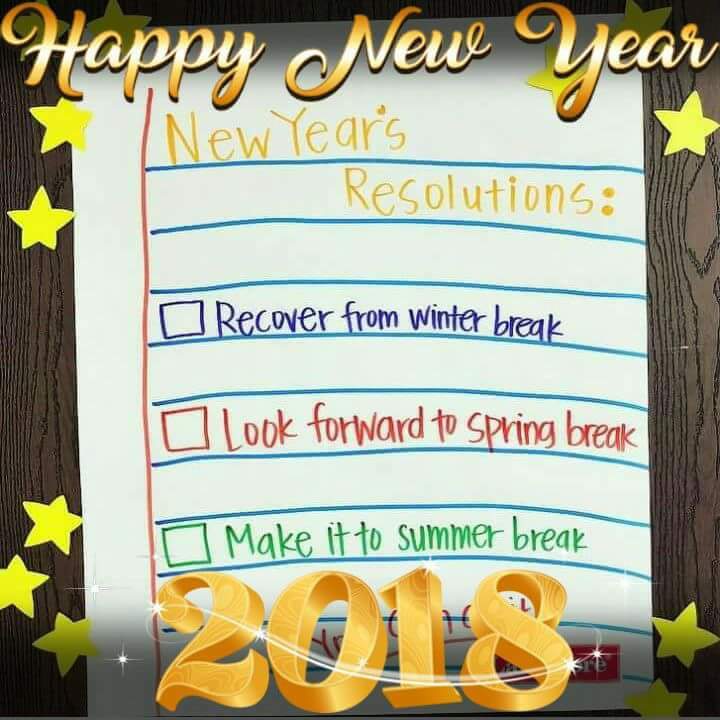 Happy New Year
New Year's
Resolutions:
Recover from winter break
Look forward to spring break
Make it to summer break
2018